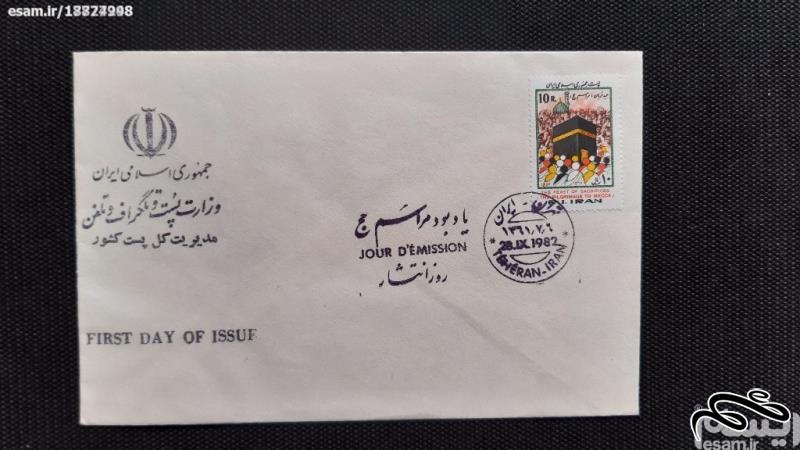 esam.ir/
جمهوری اسلامی ایران
وزارت پست و تلگراف و تلفن
مدیریت کل پست کشور
FIRST DAY OF ISSUE
پست جمهوری اسلامی ایران
10 R.
۱۰ ریال
THE FEAST OF SACRIFICES
THE PILGRIMAGE TO MECCA
IRAN
یادبود مراسم حج
JOUR D'ÉMISSION
روز انتشار
ایران
۱۳۶۱٫۷٫۶
* 28.IX.1982 *
TÉHÉRAN-IRAN
ایسام
esam.ir